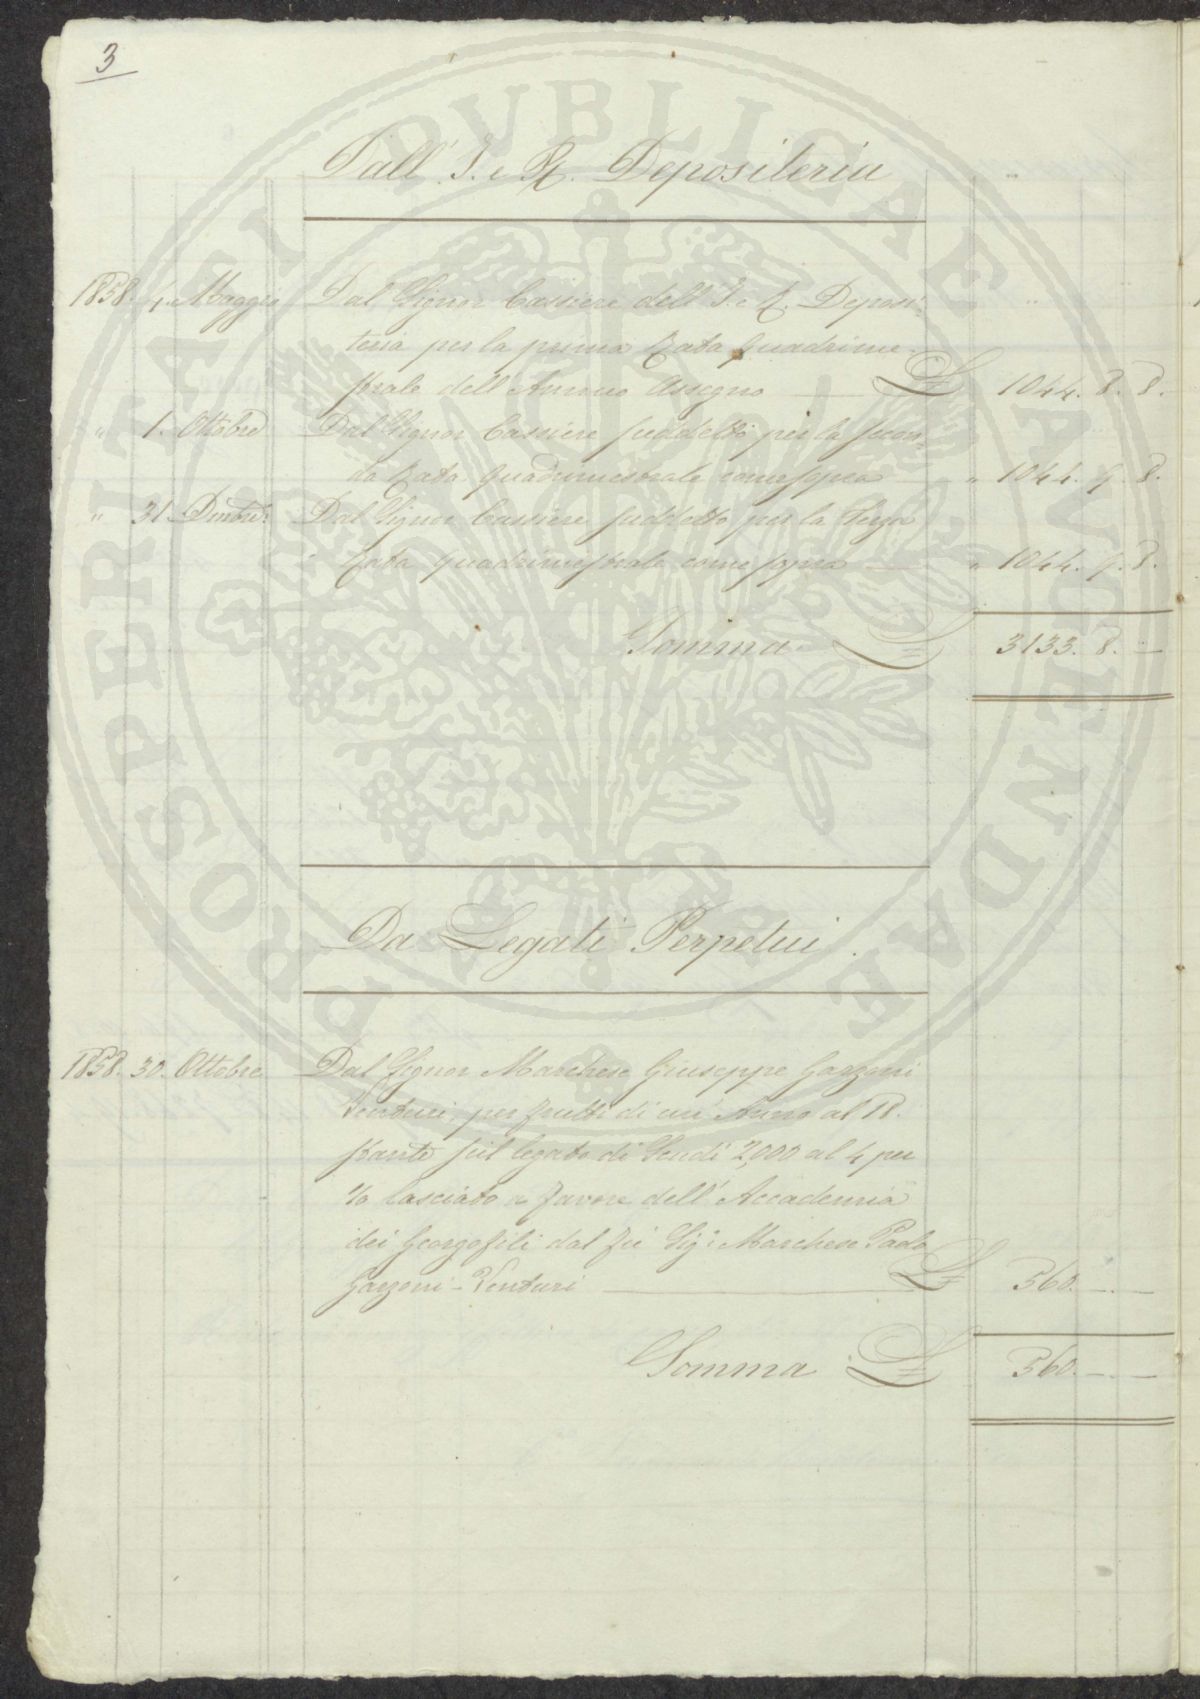 3
PROSPERITATI PVBLICAE AVGENDAE
Dall' I. e R. Depositeria
1858. 1. Maggio Dal Signor Cassiere dell' I. e R. Deposi-
teria per la prima Rata Quadrime-
strale dell' Annuo Assegno £ 1044. 8. 8.
" 1. Ottobre Dal Signor Cassiere suddetto per la secon-
da Rata quadrimestrale come sopra " 1044. 9. 8.
" 31. Dmbre. Dal Signor Cassiere suddetto per la Terza
Rata quadrimestrale come sopra " 1044. 9. 8.
Somma £ 3133. 8. —
Da Legati Perpetui.
1858. 30. Ottobre Dal Signor Marchese Giuseppe Garzoni
Venturi, per frutti di un' Anno al
stante sul legato di Scudi 2,000 al 4 per
% lasciato a favore dell' Accademia
dei Georgofili dal fu Sig: Marchese Paolo
Garzoni - Venturi £ 560. —. —
Somma £ 560. —. —